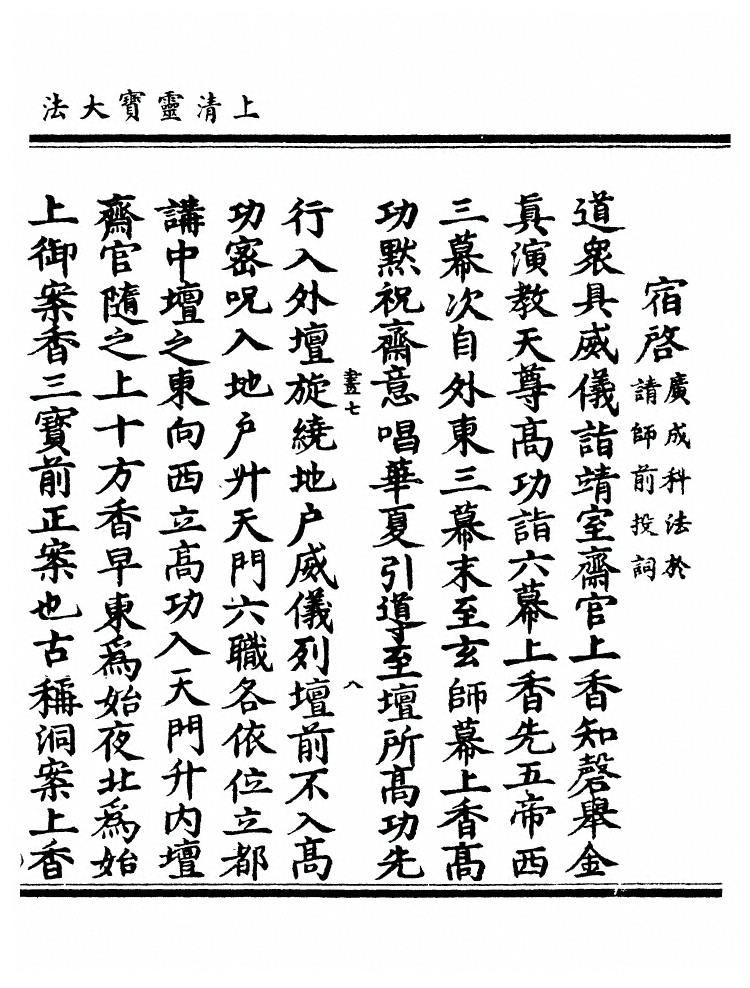 上清靈寳大法
宿啓廣成科法於請師前投詞
道衆具威儀詣靖室齋官上香知磬舉金
眞演教天尊高功詣六幕上香先五帝西
三幕次自外東三幕末至玄師幕上香高
功默祝齋意唱華夏引導至壇所高功先
晝七
八
行入外壇旋繞地户威儀列壇前不入高
功密呪入地户升天門六職各依位立都
講中壇之東向西立高功入天門升内壇
齋官隨之上十方香早東爲始夜北爲始
上御案香三寳前正案也古稱洞案上香